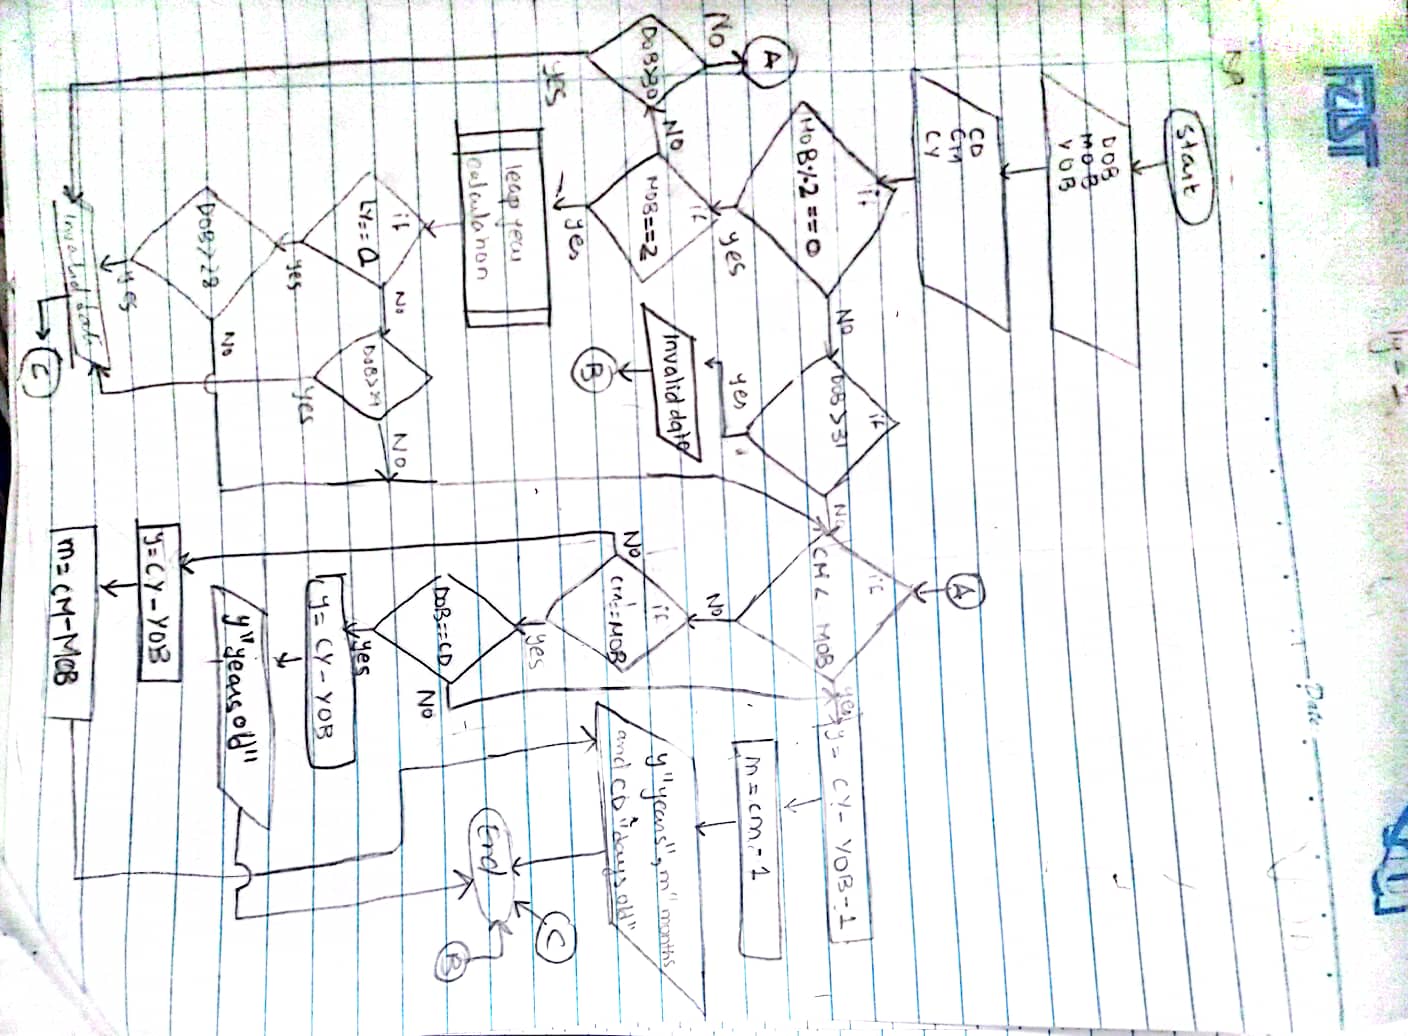 Start
DOB
MOB
YOB
CD
CM
CY
if
MOB%2==0
yes
No
if
DOB>31
yes
No
Invalid date
B
if
MOB==2
No
yes
DOB>30
No
A
yes
leap year
calculation
if
LY==0
yes
No
DOB>29
yes
No
DOB>28
yes
No
Invalid date
C
A
if
CM < MOB
yes
No
y = CY - YOB-1
m = cm-1
y "years", m "months
and CD "days old"
if
CM==MOB
No
yes
DOB==CD
yes
No
y = CY - YOB
y "years old"
y = CY - YOB
m = CM-MOB
End
C
B
Date